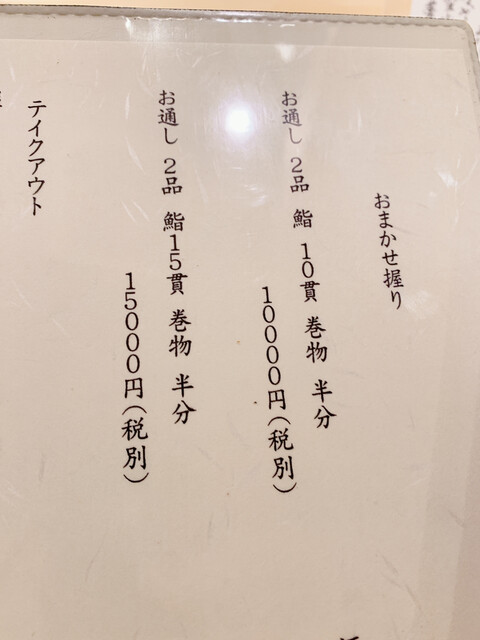 おまかせ握り
お通し 2品 鮨 10貫 巻物 半分
10000円(税別)
お通し 2品 鮨15貫 巻物 半分
15000円(税別)
テイクアウト